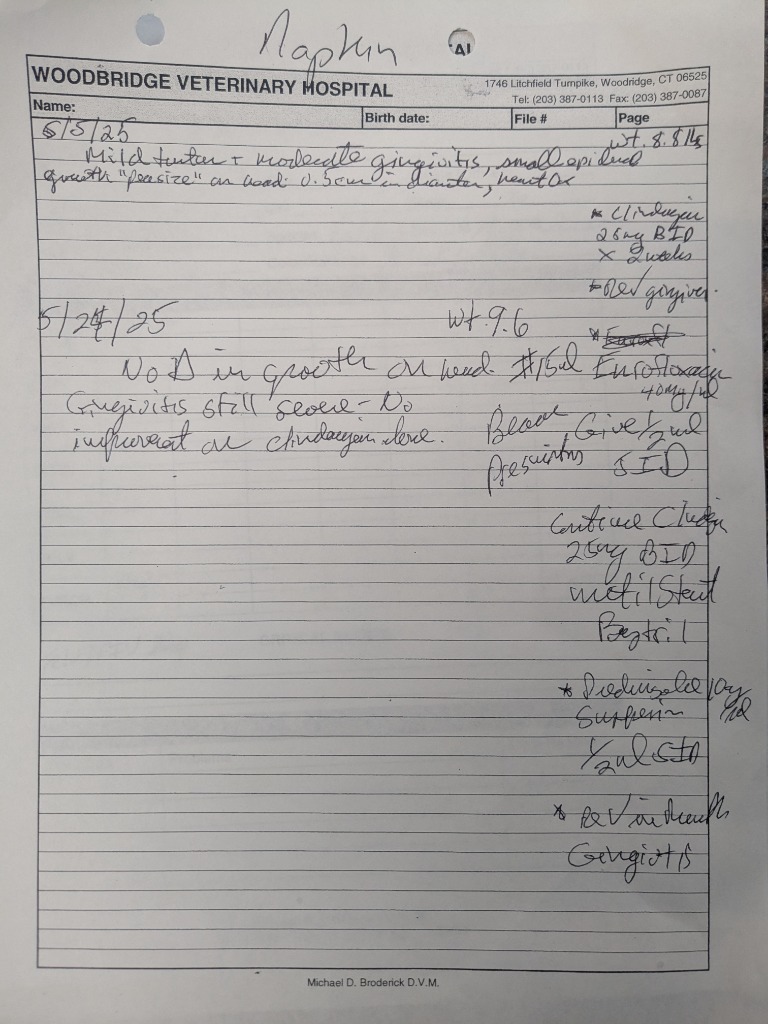 Napkin
AI
WOODBRIDGE VETERINARY HOSPITAL
1746 Litchfield Turnpike, Woodridge, CT 06525
Tel: (203) 387-0113 Fax: (203) 387-0087
Name:
Birth date:
File #
Page
5/5/25
wt. 8.8 lbs
Mild tartar + moderate gingivitis, small epidermal
growth "pea size" on head. 0.5cm in diameter, heart ok
* Clindamycin
25mg BID
x 2 weeks
* Rev gingivitis.
5/24/25
Wt. 9.6
No Δ in growth on head.
Gingivitis still severe - No
improvement on clindamycin alone.
#15ml Enrofloxacin
40mg/ml
Give 1/2 ml
SID
Prescription
Continue Clinda
25mg BID
until Start
Baytril
* Prednisolone 10mg
/ml
Suspension
1/2 ml SID
* Rev in month
Gingivitis
Michael D. Broderick D.V.M.